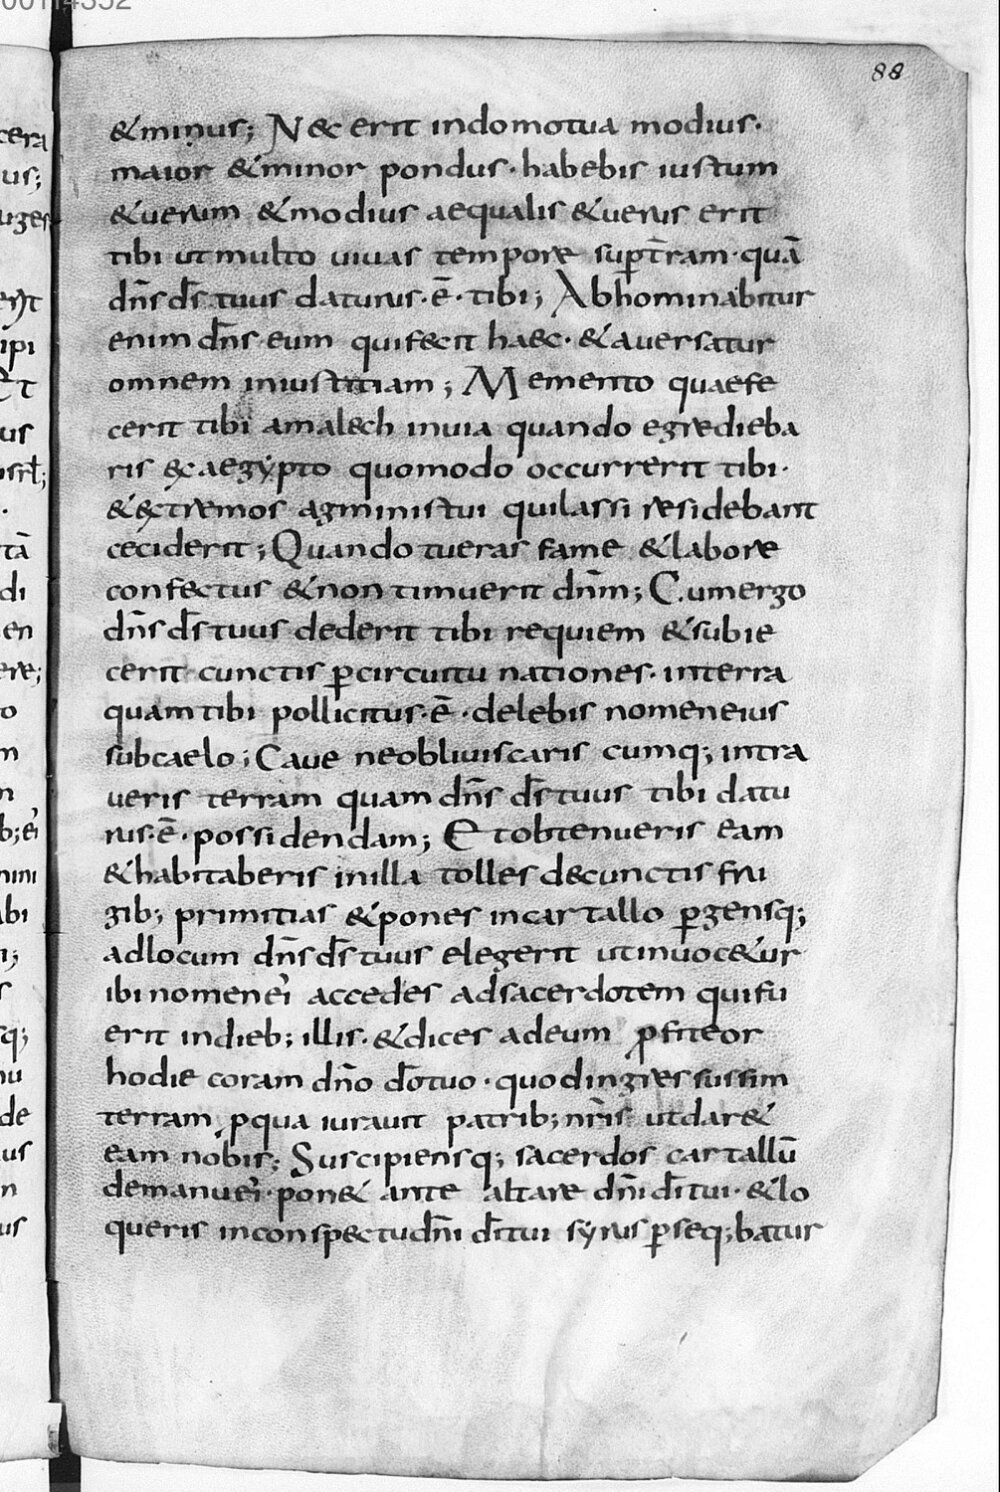 88
&minus; Nec erit indomotua modius·
maior &minor pondus· habebis iustum
&uerum &modius aequalis &uerus erit
tibi ut multo uiuas tempore sup̄ t̄ram· quā
dn̄s d̄s tuus daturus· ē· tibi; Abhominabitur
enim dn̄s eum quifecit haec· &auersatur
omnem iniustitiam; Memento quaefe
cerit tibi amalech inuia quando egredieba
ris exaegypto quomodo occurrerit tibi·
&extremos agministui quilassi residebant
ceciderit; Quando tueras fame &labore
confectus &non timuerit dn̄m; Cumergo
dn̄s d̄s tuus dederit tibi requiem &subie
cerit cunctis ꝑcircuitu nationes· interra
quamtibi pollicitus· ē· delebis nomeneius
subcaelo; Caue neobliuiscaris cumq; intra
ueris terram quam dn̄s d̄s tuus tibi datu
rus· ē· possidendam; Etobtenueris eam
&habitaberis inilla tolles decunctis fru
gib; primitias &pones incartallo ꝑgensq;
adlocum dn̄s d̄s tuus elegerit utinuoc&ur
ibi nomenei accedes adsacerdotem quifu
erit indieb; illis· &dices adeum ꝓfiteor
hodie coram dn̄o d̄otuo· quodingressussim
terram ꝓqua iurauit patrib; nr̄is utdar&
eam nobis; Suscipiensq; sacerdos cartallū
demanuei· pon& ante altare dn̄i d̄i tui· &lo
queris inconspectudn̄i d̄i tui syrus ꝑseq;batur